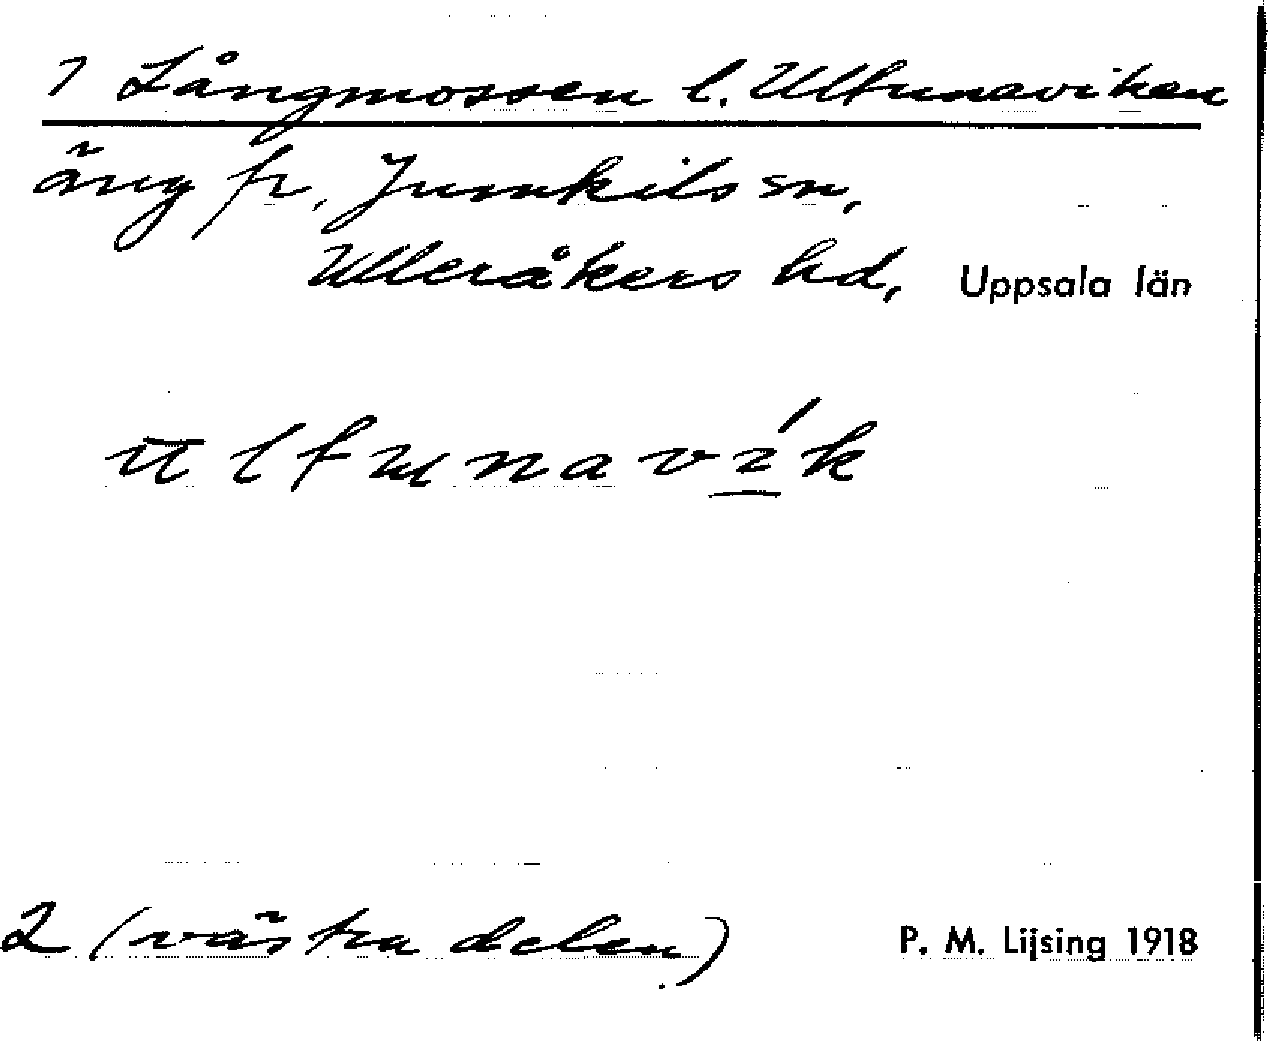 1 Långmossen l. Ultunaviken
äng fr. Jumkils sn,
Ulleråkers hd, Uppsala län
ūltunavík
2 (västra delen) P. M. Lijsing 1918